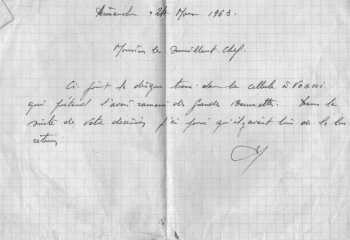 Dimanche 24 Mars 1963.
Monsieur le Surveillant Chef.
Ci joint le disque trouvé dans la cellule à
qui prétend l'avoir ramené de Dans la
suite de votre décision j'ai pensé qu'il y avait lieu de le lui
retirer